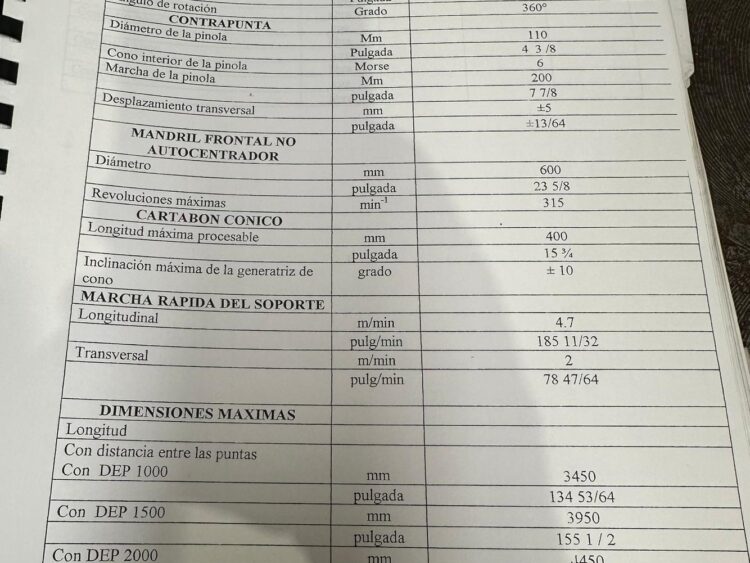 de rotación Grado 360°
CONTRAPUNTA
Diámetro de la pinola Mm 110
Pulgada 4 3 /8
Cono interior de la pinola Morse 6
Marcha de la pinola Mm 200
pulgada 7 7/8
Desplazamiento transversal mm ±5
pulgada ±13/64
MANDRIL FRONTAL NO
AUTOCENTRADOR
Diámetro mm 600
pulgada 23 5/8
Revoluciones máximas min⁻¹ 315
CARTABON CONICO
Longitud máxima procesable mm 400
pulgada 15 ¾
Inclinación máxima de la generatriz de grado ± 10
cono
MARCHA RAPIDA DEL SOPORTE
Longitudinal m/min 4.7
pulg/min 185 11/32
Transversal m/min 2
pulg/min 78 47/64
DIMENSIONES MAXIMAS
Longitud
Con distancia entre las puntas
Con DEP 1000 mm 3450
pulgada 134 53/64
Con DEP 1500 mm 3950
pulgada 155 1 / 2
Con DEP 2000 mm